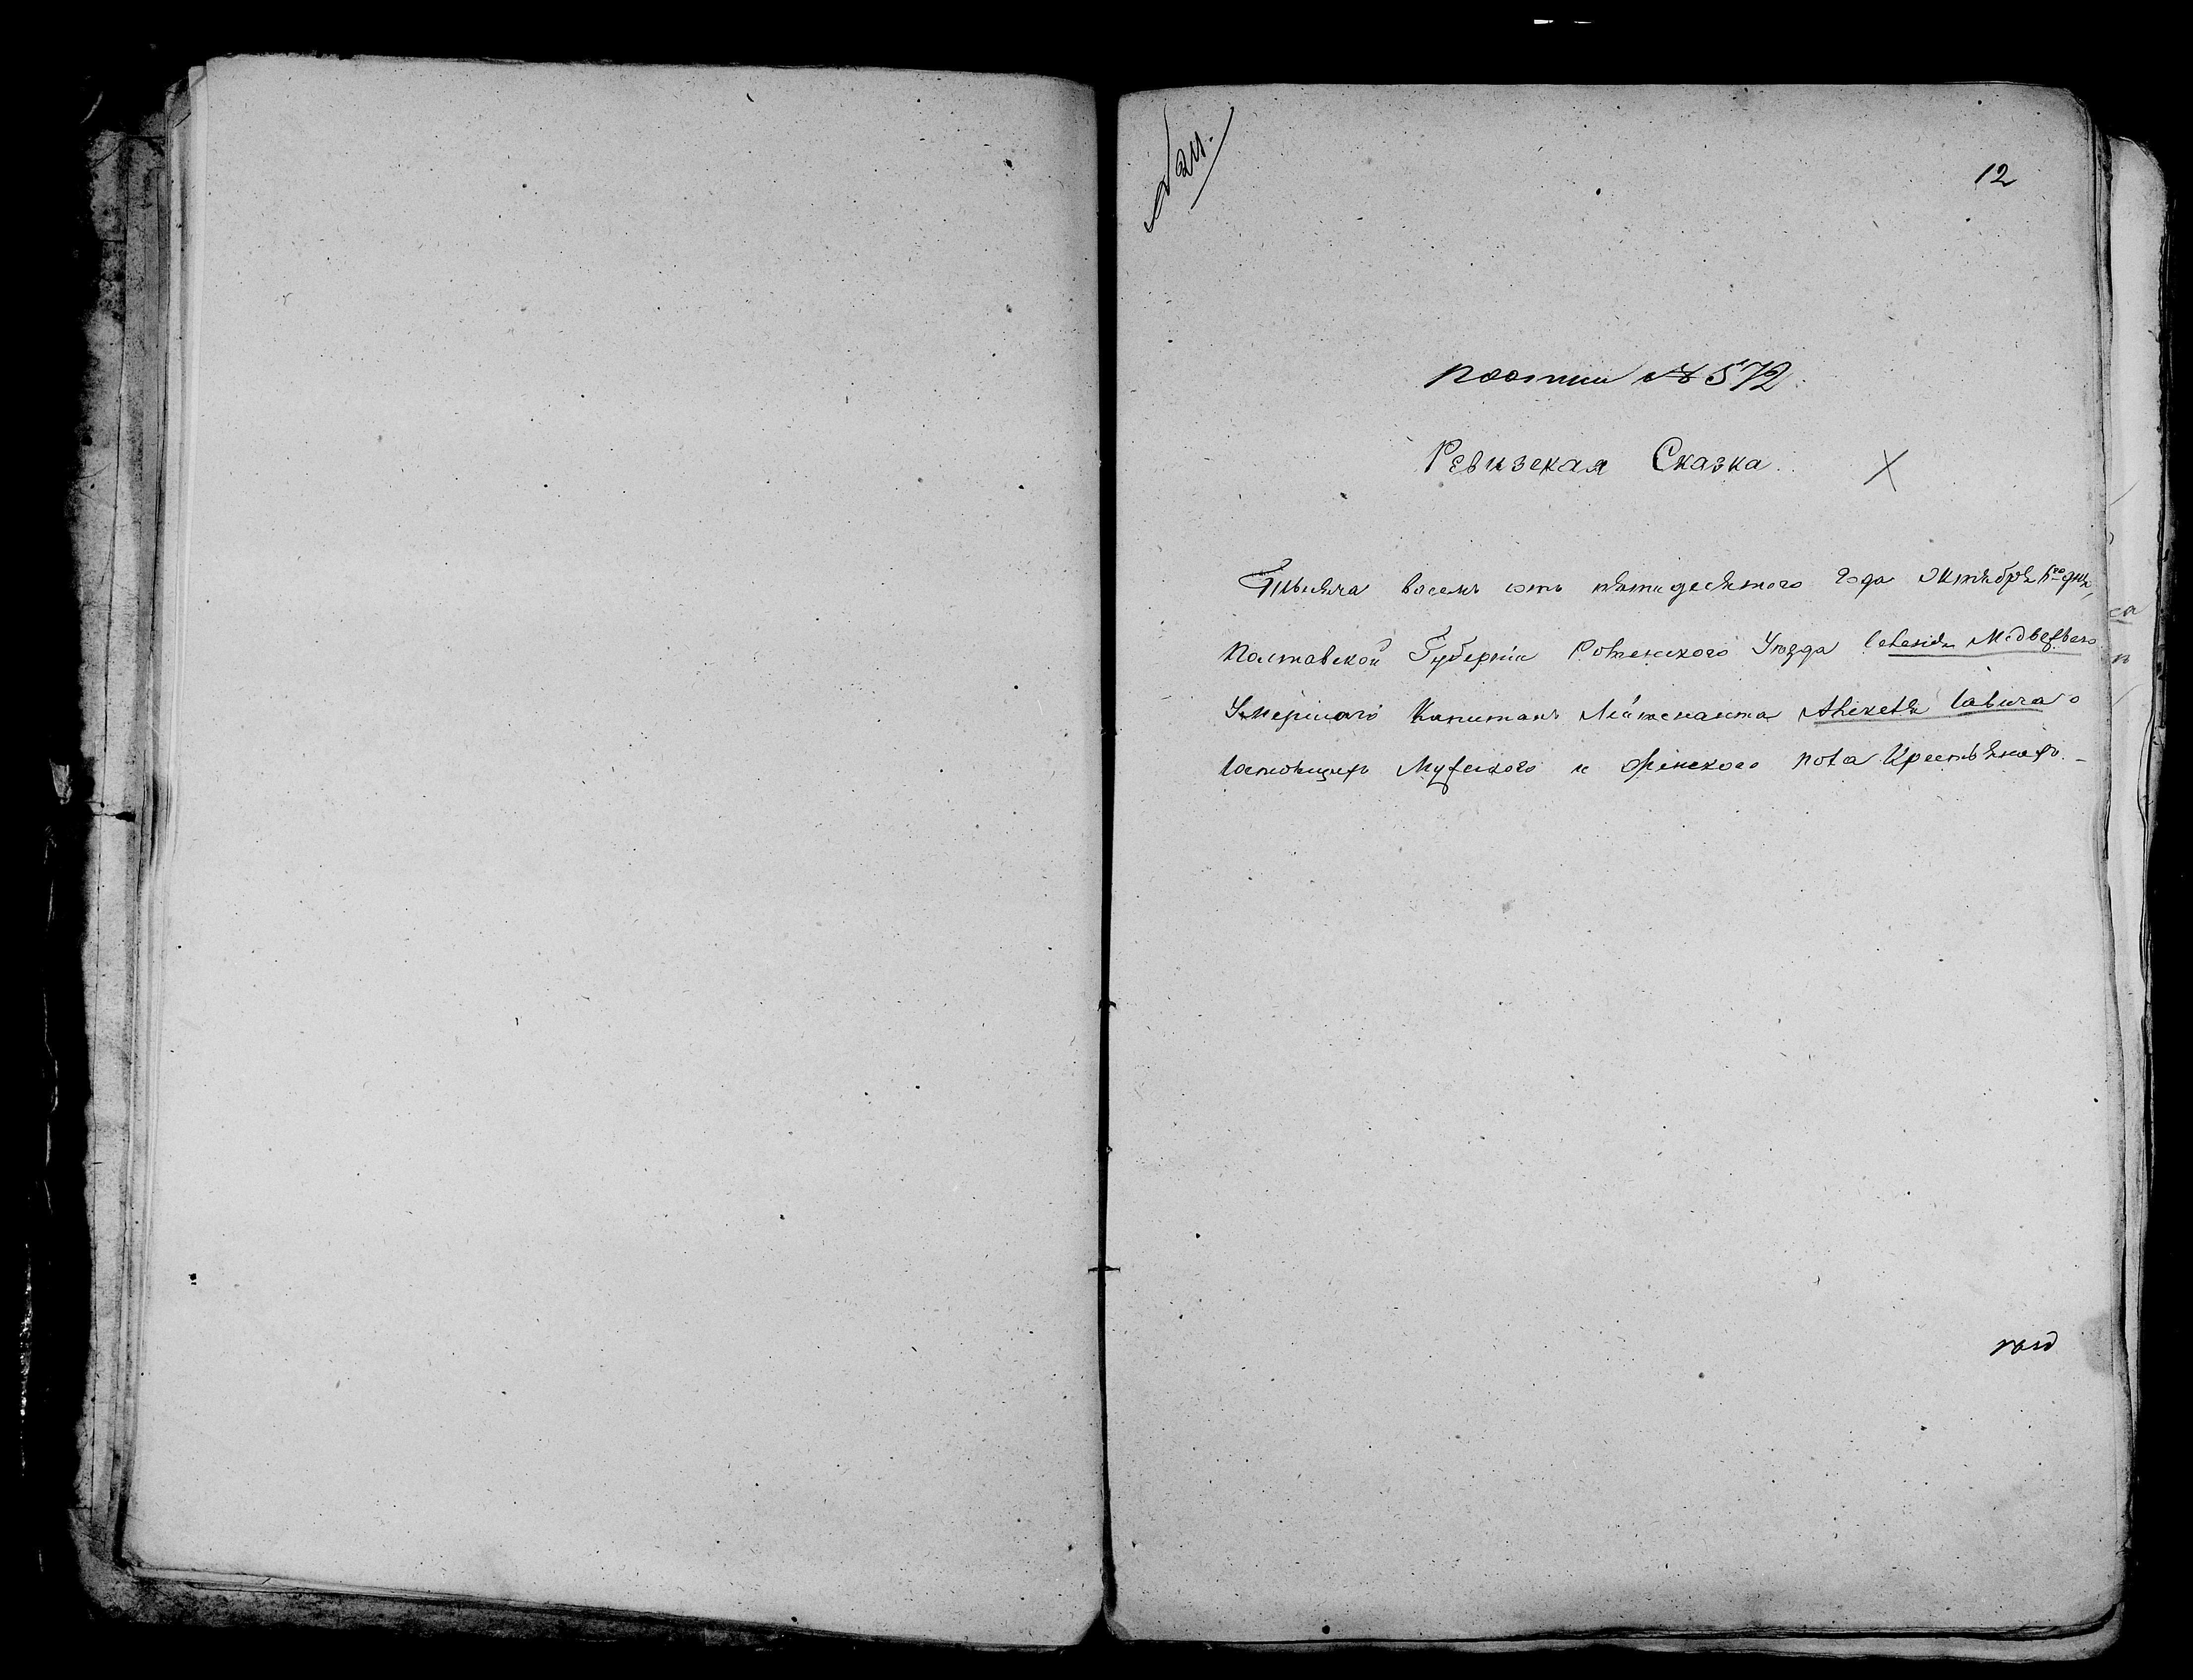 12
по описи № 572.
Ревизская Сказка.
Тысяча восемь сотъ пятидесятого года Октября 15го дня,
Полтавской Губерніи Роменского Уѣзда Селенія Медвежего
Умершаго Капитанъ Лейтенанта Алексѣя Савича о
состоящихъ Мужеского и Женского пола Крестьянахъ. -